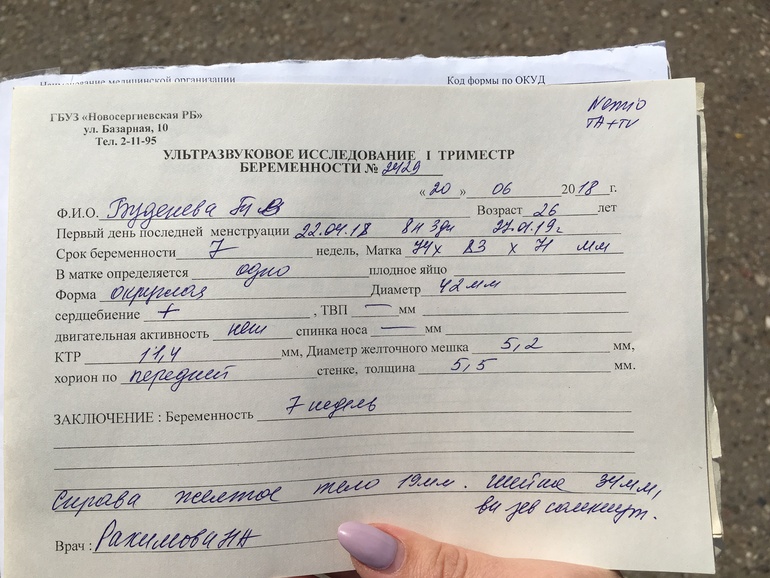 Наименование медицинской организации
Код формы по ОКУД
ГБУЗ «Новосергиевская РБ»
ул. Базарная, 10
Тел. 2-11-95
ТА+TV
УЛЬТРАЗВУКОВОЕ ИССЛЕДОВАНИЕ I ТРИМЕСТР
БЕРЕМЕННОСТИ № 2429
«20» 06 2018 г.
Ф.И.О. Возраст 26 лет
Первый день последней менструации 22.04.18 8н 3дн 27.01.19г
Срок беременности 7 недель, Матка 74 х 53 х 71 мм
В матке определяется одно плодное яйцо
Форма округлая Диаметр 42 мм
сердцебиение + , ТВП — мм
двигательная активность нет спинка носа — мм
КТР 11,4 мм, Диаметр желточного мешка 5,2 мм,
хорион по передней стенке, толщина 5,5 мм.
ЗАКЛЮЧЕНИЕ : Беременность 7 недель
Справа желтое тело 19мм. Шейка 34мм,
вн зев сомкнут.
Врач : Рахимова НН